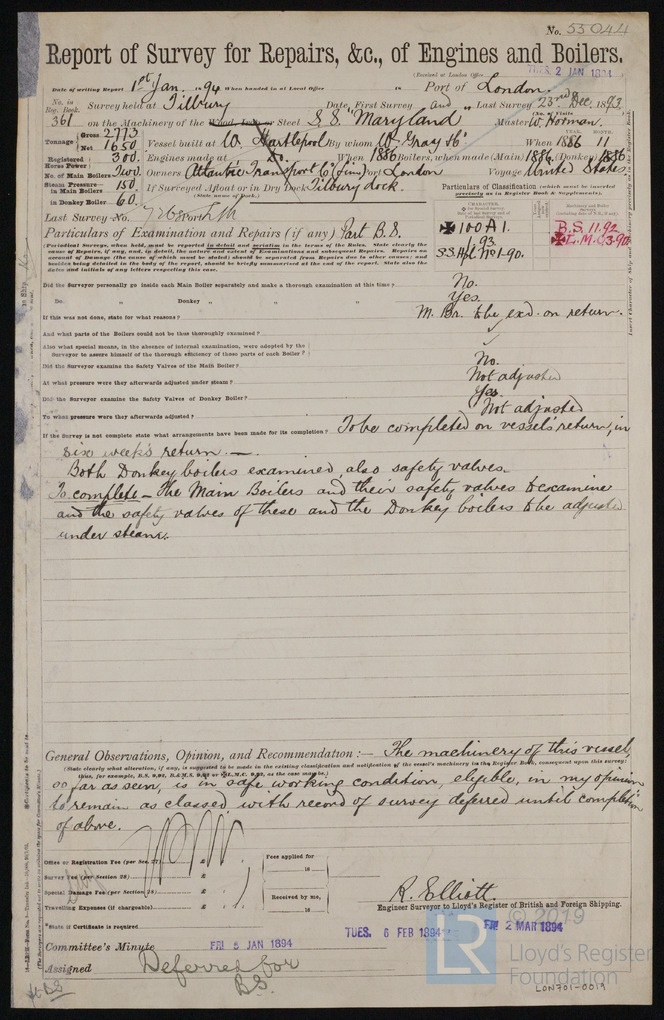 No. 55044
Report of Survey for Repairs, &c., of Engines and Boilers.
(Received at London Office TUES. 2 JAN 1894
Date of writing Report 1st Jan. 1894 When handed in at Local Office 18 Port of London
No. in Reg. Book. Survey held at Tilbury Date, First Survey and " Last Survey 23rd Dec. 1893
(No. of Visits
361 on the Machinery of the Wood, Iron, or Steel S.S. "Maryland" Master W. Horman.
Tonnage Gross 2773 Net 1650 Vessel built at W. Hartlepool By whom W. Gray & Co. When 1886 11
YEAR. MONTH.
Registered Horse Power 300. Engines made at Do. When 1886 Boilers, when made (Main) 1886 (Donkey) 1886
No. of Main Boilers Two Owners Atlantic Transport Co (Lim) Port London Voyage United States
Steam Pressure in Main Boilers 150. If Surveyed Afloat or in Dry Dock Tilbury Dock.
(State name of Dock.)
in Donkey Boiler 60.
Particulars of Classification (which must be inserted precisely as in Register Book & Supplements).
Last Survey No.
Particulars of Examination and Repairs (if any) Part B.S.
✠100A1. 93
S.S. Hpl. No 1-90.
B.S 11.92
✠L.M.C 3.90
(Periodical Surveys, when held, must be reported in detail and seriatim in the terms of the Rules. State clearly the
cause of Repairs, if any, and, in detail, the nature and extent of Examinations and subsequent Repairs. Repairs on
account of Damage (the cause of which must be stated) should be separated from Repairs due to other causes; and
besides being detailed in the body of the report, should be briefly summarised at the end of the report. State also the
dates and initials of any letters respecting this case.
Did the Surveyor personally go inside each Main Boiler separately and make a thorough examination at this time? No.
Do. " Donkey " " " Yes.
If this was not done, state for what reasons? M. Br. to be exd. on return.
And what parts of the Boilers could not be thus thoroughly examined?
Also what special means, in the absence of internal examination, were adopted by the
Surveyor to assure himself of the thorough efficiency of those parts of each Boiler?
Did the Surveyor examine the Safety Valves of the Main Boiler? No.
At what pressure were they afterwards adjusted under steam? Not adjusted
Did the Surveyor examine the Safety Valves of Donkey Boiler? Yes.
To what pressure were they afterwards adjusted? Not adjusted
If the Survey is not complete state what arrangements have been made for its completion? To be completed on vessel's return, in
six week's return.—
Both Donkey boilers examined, also safety valves.
To complete — The Main Boilers and their safety valves to examine
and the safety valves of these and the Donkey boilers to be adjusted
under steam.
General Observations, Opinion, and Recommendation :— The machinery of this vessel,
(State clearly what alteration, if any, is suggested to be made in the existing classification and notification of the vessel's machinery in the Register Book, consequent upon this survey:
thus, for example, B.S. 9,92, B.&M.S. 9,92 or ✠L.M.C. 9,92, as the case may be.)
so far as seen, is in safe working condition, eligible, in my opinion
to remain as classed with record of survey deferred until completion
of above.
Office or Registration Fee (per Sec. 27) £
Survey Fee (per Section 28) £
Special Damage Fee (per Section 28) £
Travelling Expenses (if chargeable) £
Fees applied for 18
Received by me, 18
R. Elliott.
Engineer Surveyor to Lloyd's Register of British and Foreign Shipping.
*State if Certificate is required
Committee's Minute FRI 5 JAN 1894 TUES. 6 FEB 1894 FRI 2 MAR 1894
Assigned Deferred for
B.S.
© 2019
LR
Lloyd's Register
Foundation
LON701-0019